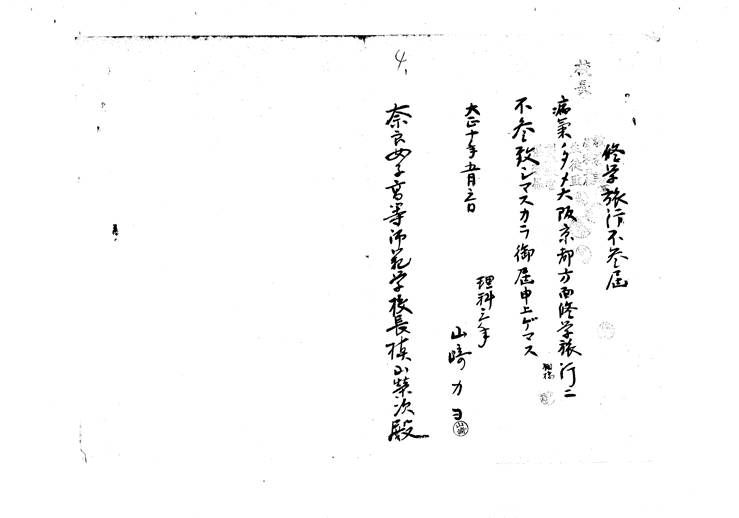 校長
修学旅行不参届
病氣ノタメ大阪京都方面修学旅行ニ
不参致シマスカラ御届申上ゲマス
大正十年五月三日
理科三年
山﨑カヨ
奈良女子高等師範学校長槇山榮次殿
4